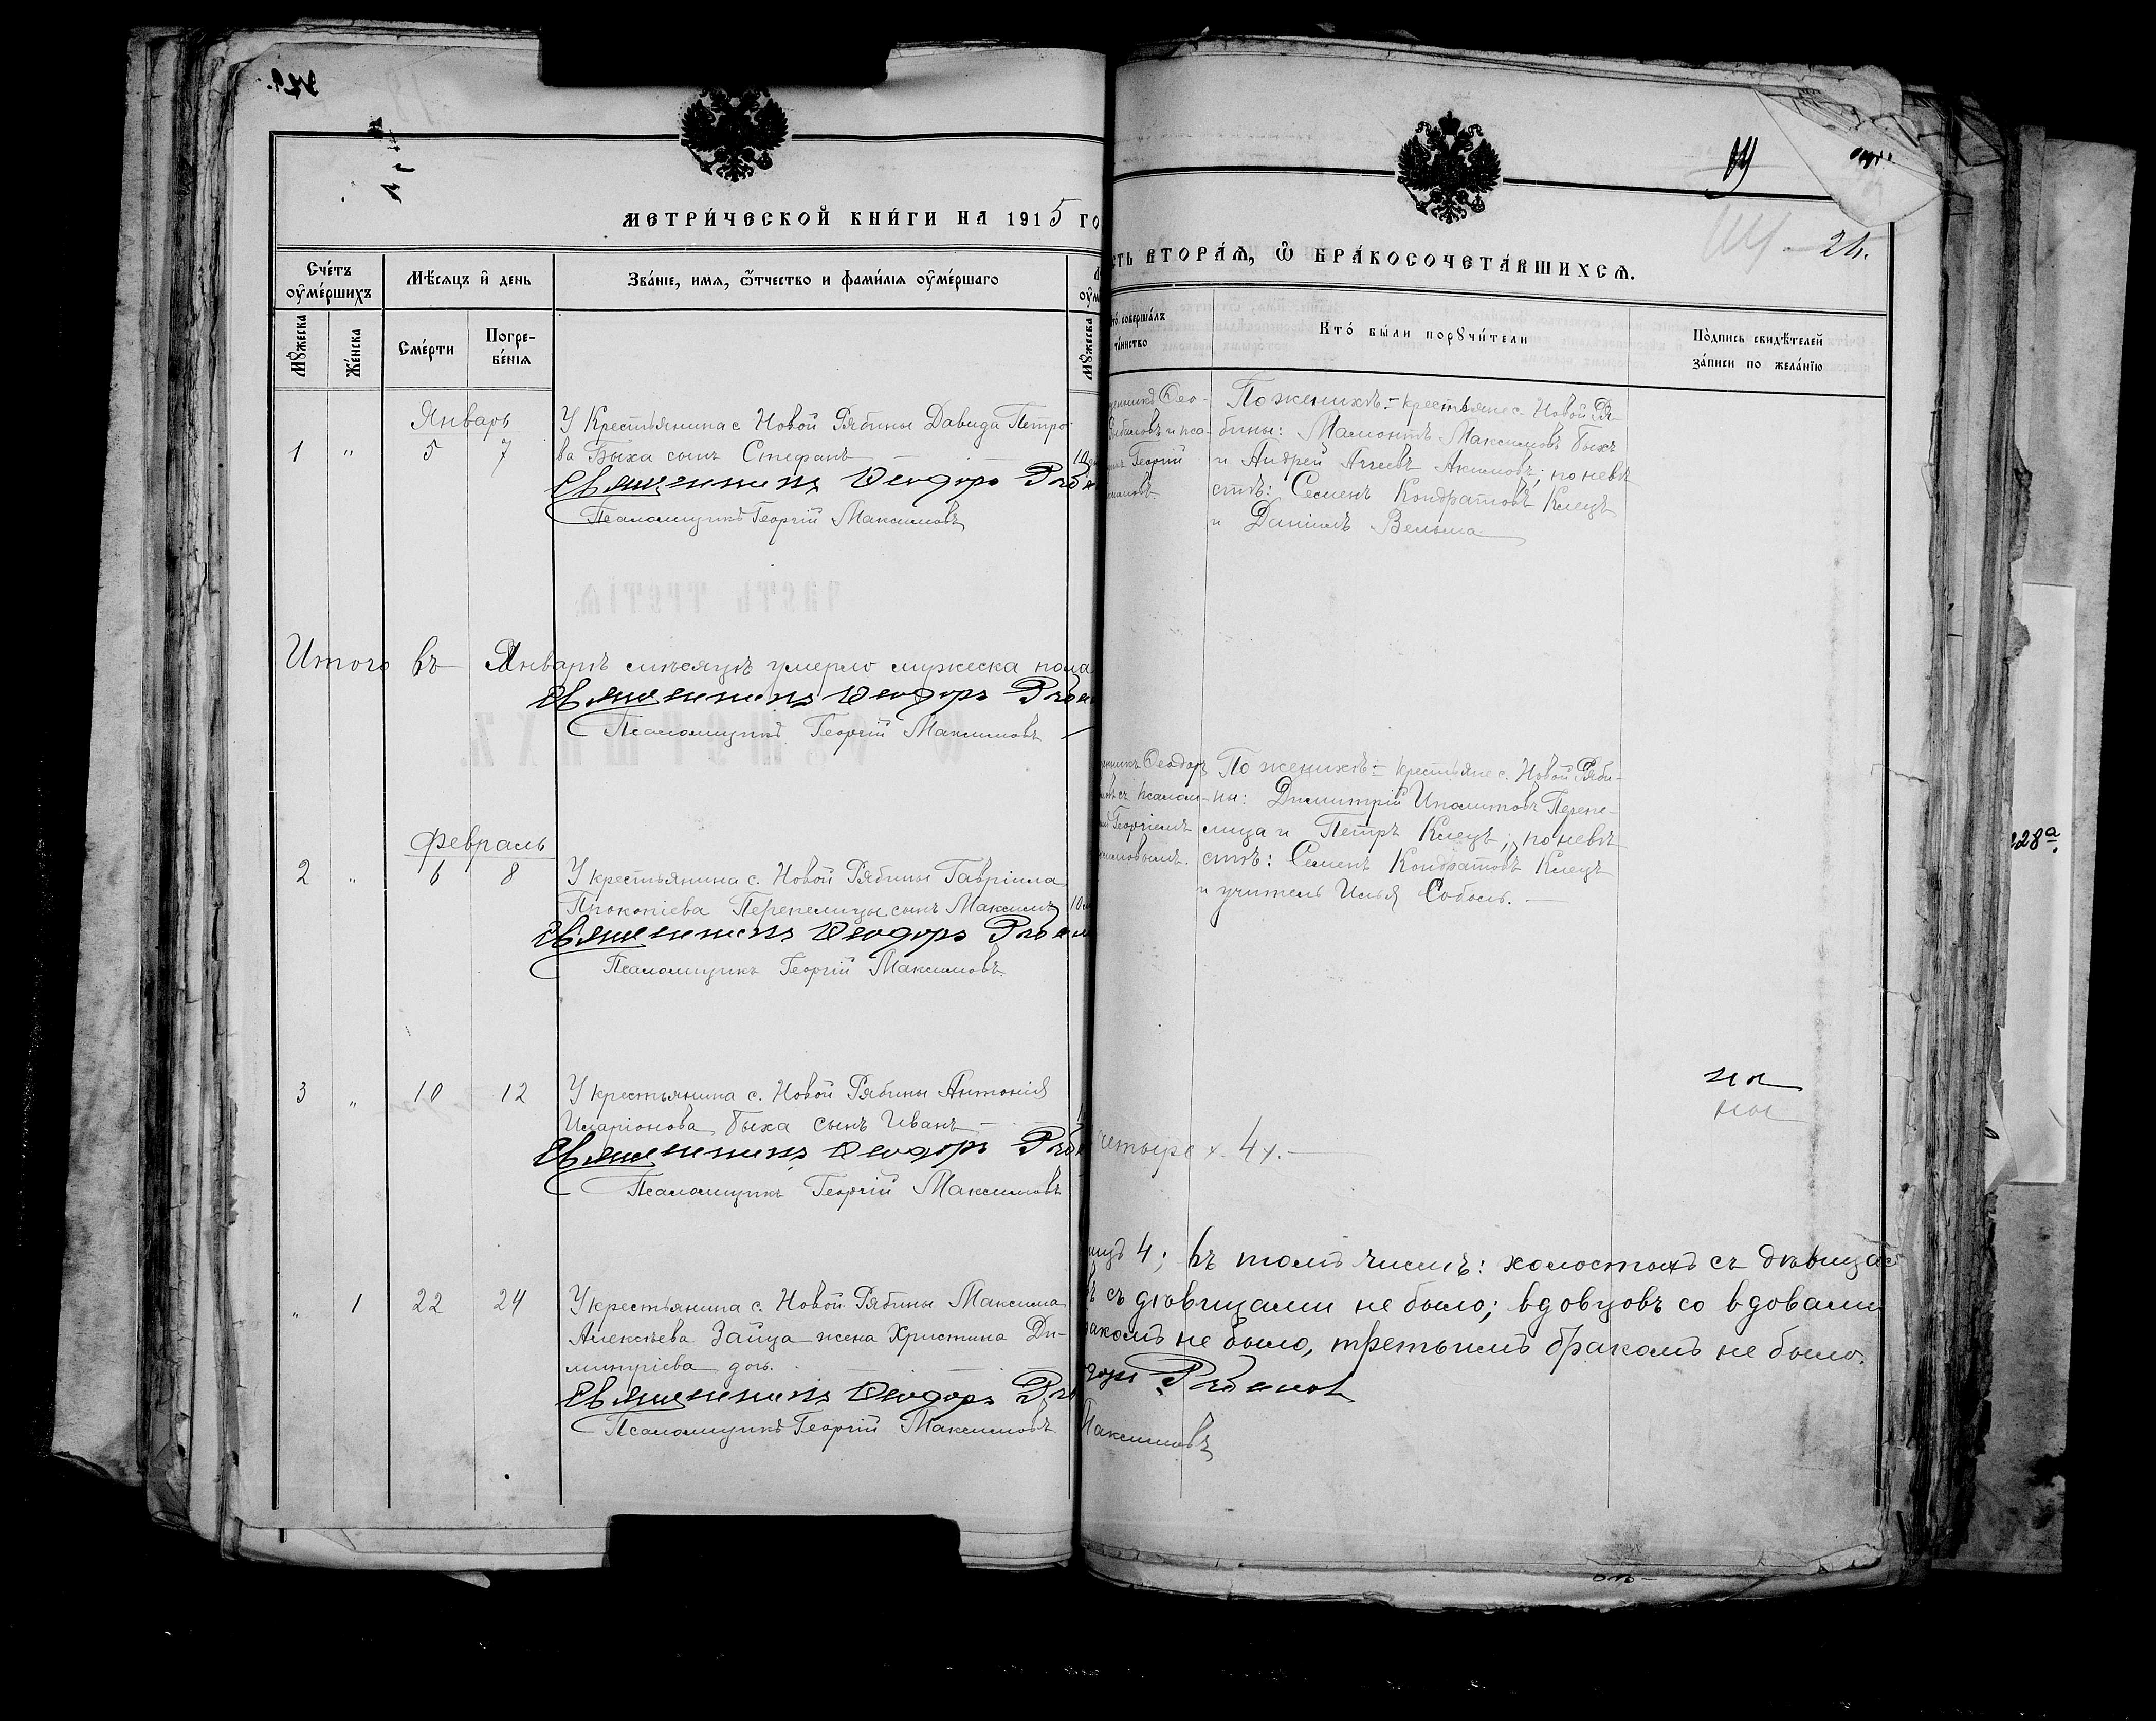 МЕТРИ́ЧЕСКОЙ КНИ́ГИ НА 1915 ГО
Сче́тъ оу҆ме́ршихъ
Мѣ́сяцъ и҆ день
Зва́нїе, имя, ѿтчество и фами́лїя оу҆ме́ршаго
Мꙋ́жеска
Же́нска
Сме́рти
Погребе́нїя
Мꙋ́жеска
Январь
1 " 5 7 У Крестьянина с Новой Рябины Давида Петро
ва Быха сынъ Стефанъ
Священникъ Ѳеодоръ
Псаломщикъ Георгій Максимовъ
Итого въ Январѣ мѣсяцѣ умерло мужеска пола
Священникъ Ѳеодоръ
Псаломщикъ Георгій Максимовъ
Февраль
2 " 6 8 У крестьянина с. Новой Рябины Гавріила
Прокопіева Перепелицы сынъ Максимъ
Священникъ Ѳеодоръ
Псаломщикъ Георгій Максимовъ.
3 " 10 12 У крестьянина с. Новой Рябины Антонія
Иларіонова Быха сынъ Иванъ
Священникъ Ѳеодоръ
Псаломщикъ Георгій Максимовъ
" 1 22 24 У крестьянина с. Новой Рябины Максима
Алексѣева Зайца жена Христина Ди-
митріева дочь.
Священникъ Ѳеодоръ
Псаломщикъ Георгій Максимовъ
СТЬ ВТОРА́Я, Ѡ҆ БРА́КОСОЧЕТА́ВШИХСЯ.
соверша́лъ та́инство
Кто́ бы́ли порꙋчи́тели
По́дпись свидѣ́телей за́писи по жела́нїю
По женихѣ:- крестьяне с. Новой Ря-
бины: Мамонтъ Максимовъ Быхъ
Георгій и Андрей Акимовъ; по невѣ
стѣ: Семенъ Кондратовъ Клецъ
и Даніилъ Вельма
Ѳеодоръ По женихѣ:- крестьяне с. Новой Ряби-
псалом- ны: Димитрій Иполитовъ Перепе-
Георгіемъ лица и Петръ Клецъ; по невѣ
стѣ: Семенъ Кондратовъ Клецъ
и учитель Илья Соболь.
четыре х. 4 х.
4; въ томъ числѣ: холостыхъ съ дѣвицами
съ дѣвицами не было; вдовцовъ со вдовами
не было, третьимъ бракомъ не было.
Максимовъ
228а